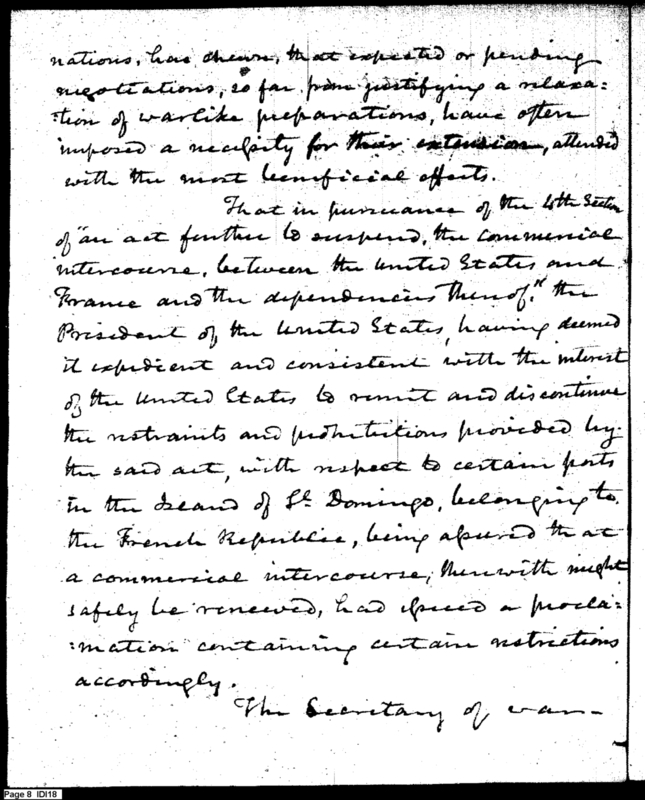 nations, has shewn, that expected or pending
negotiations, so far from justifying a relaxa=
=tion of warlike preparations, have often
imposed a necessity for their extension, attended
with the most beneficial effects.
That in pursuance of the 4th Section
of "an act further to suspend, the commercial
intercourse, between the United States and
France and the dependencies thereof." the
President of the United States, having deemed
it expedient and consistent with the interest
of the United States to remit and discontinue
the restraints and prohibitions provided by
the said act, with respect to certain ports
in the Island of St. Domingo, belonging to
the French Republic, being assured that
a commercial intercourse, therewith might
safely be renewed, had issued a procla=
=mation containing certain restrictions
accordingly.
The Secretary of war —
Page 8 IDI18